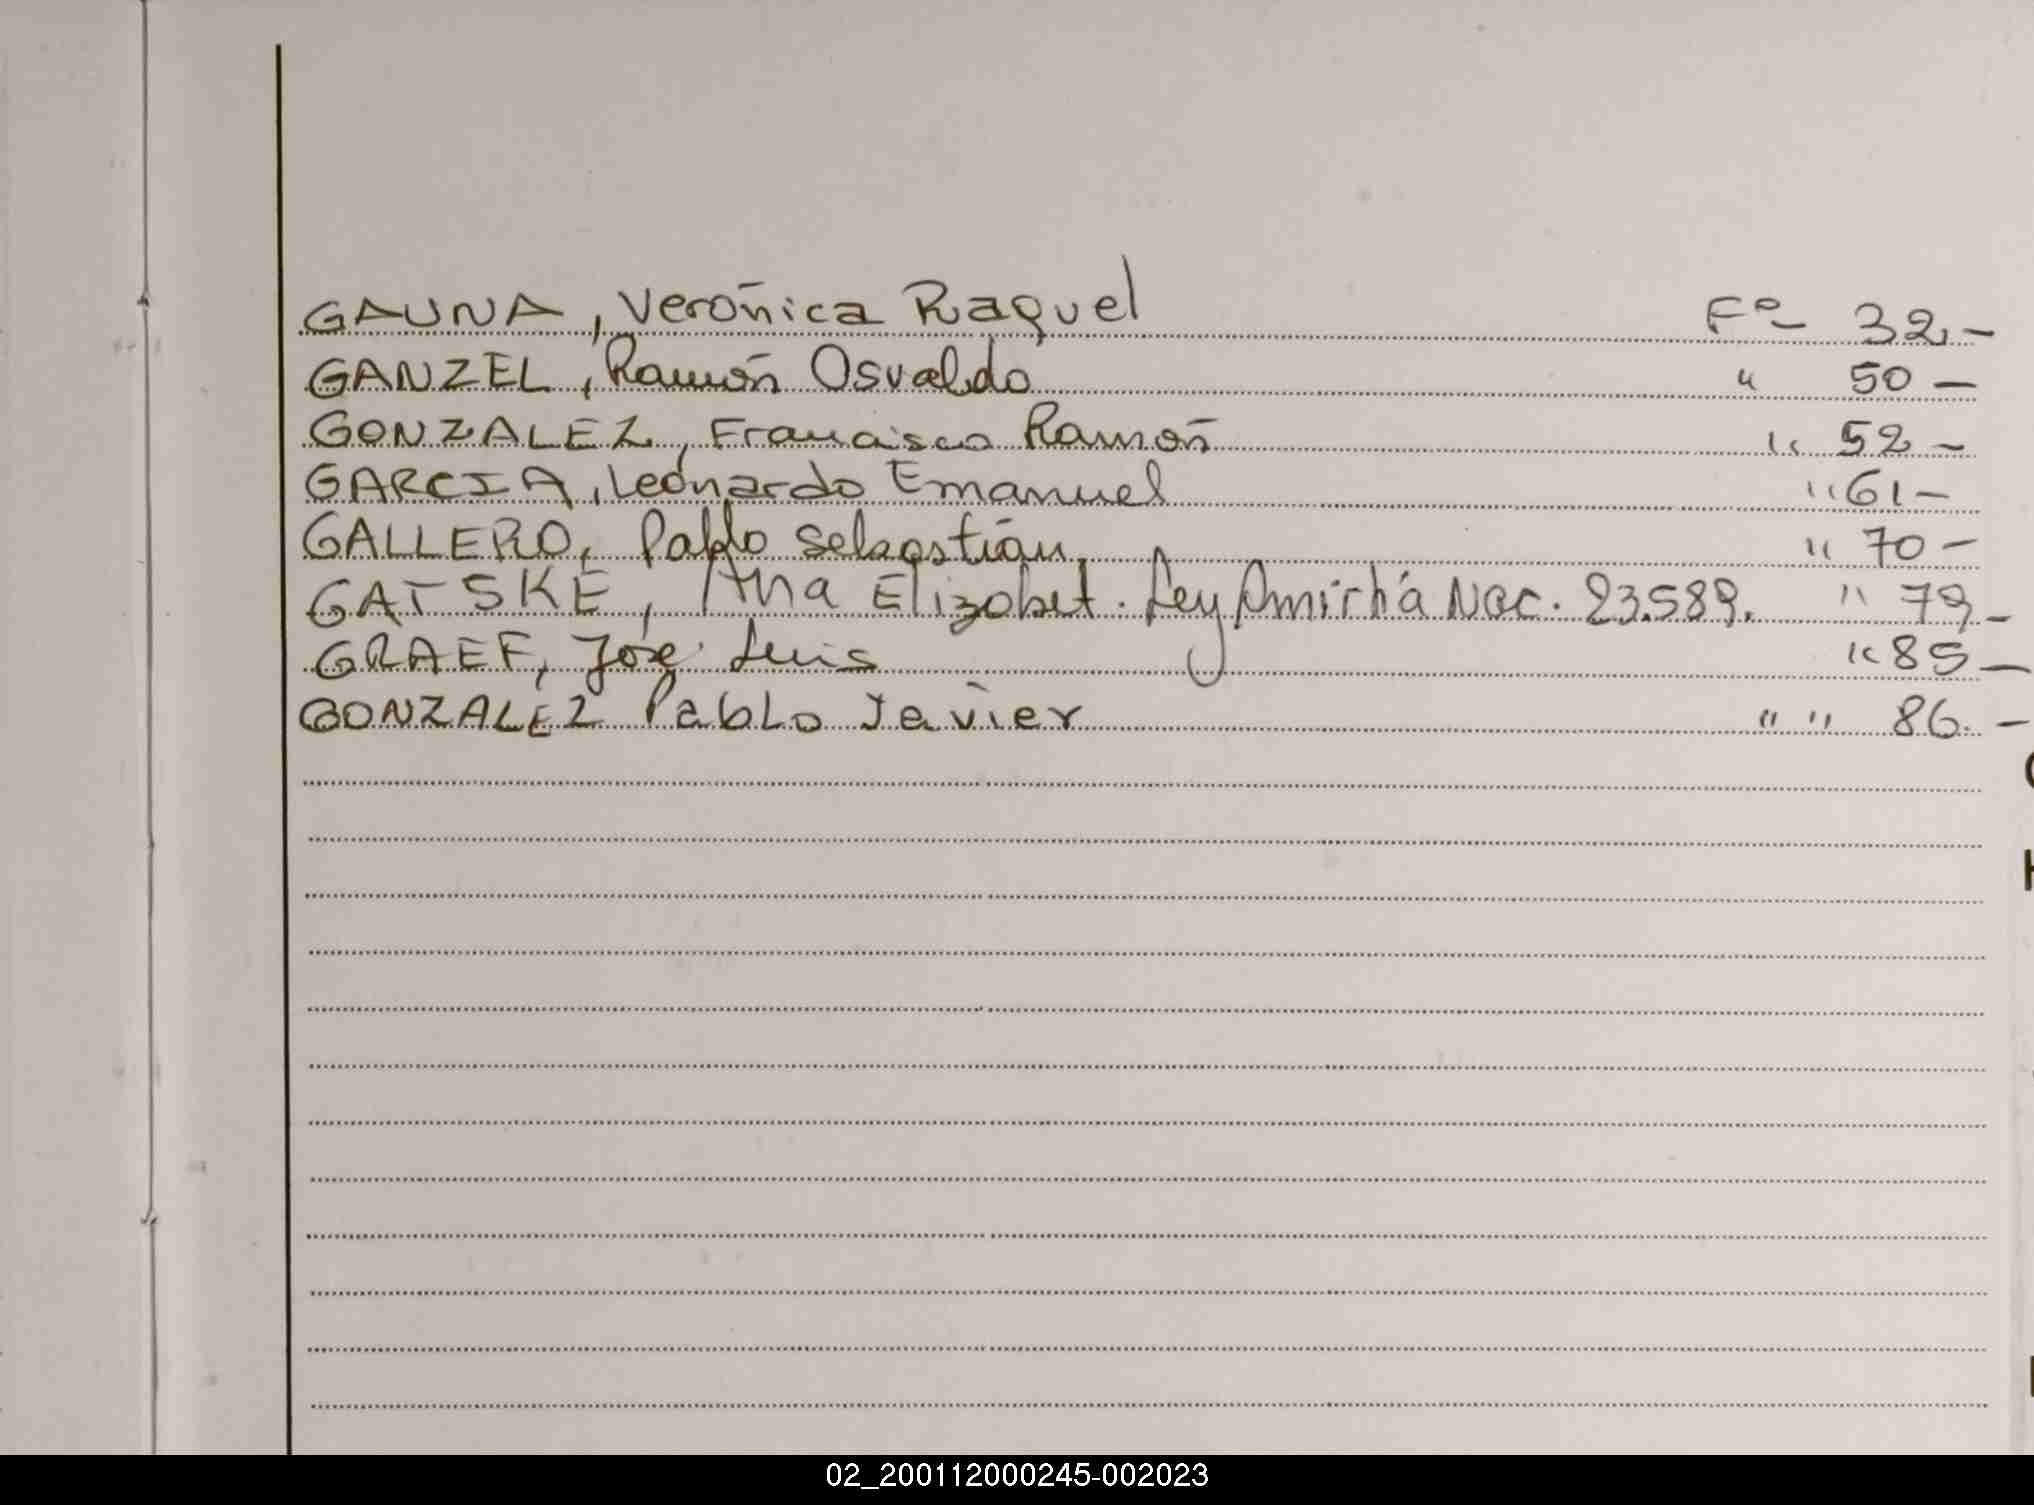 GAUNA, Verónica Raquel Fº 32.-
GANZEL, Ramón Osvaldo " 50 -
GONZALEZ, Francisco Ramón " 52 -
GARCIA, Leonardo Emanuel " 61 -
GALLERO, Pablo Sebastián " 70 -
GATSKE, Ana Elizabet. Ley Amirchá Nac. 23.589. " 79 -
GRAEF, José Luis " 85 -
GONZALEZ Pablo Javier " " 86. -
02_200112000245-002023